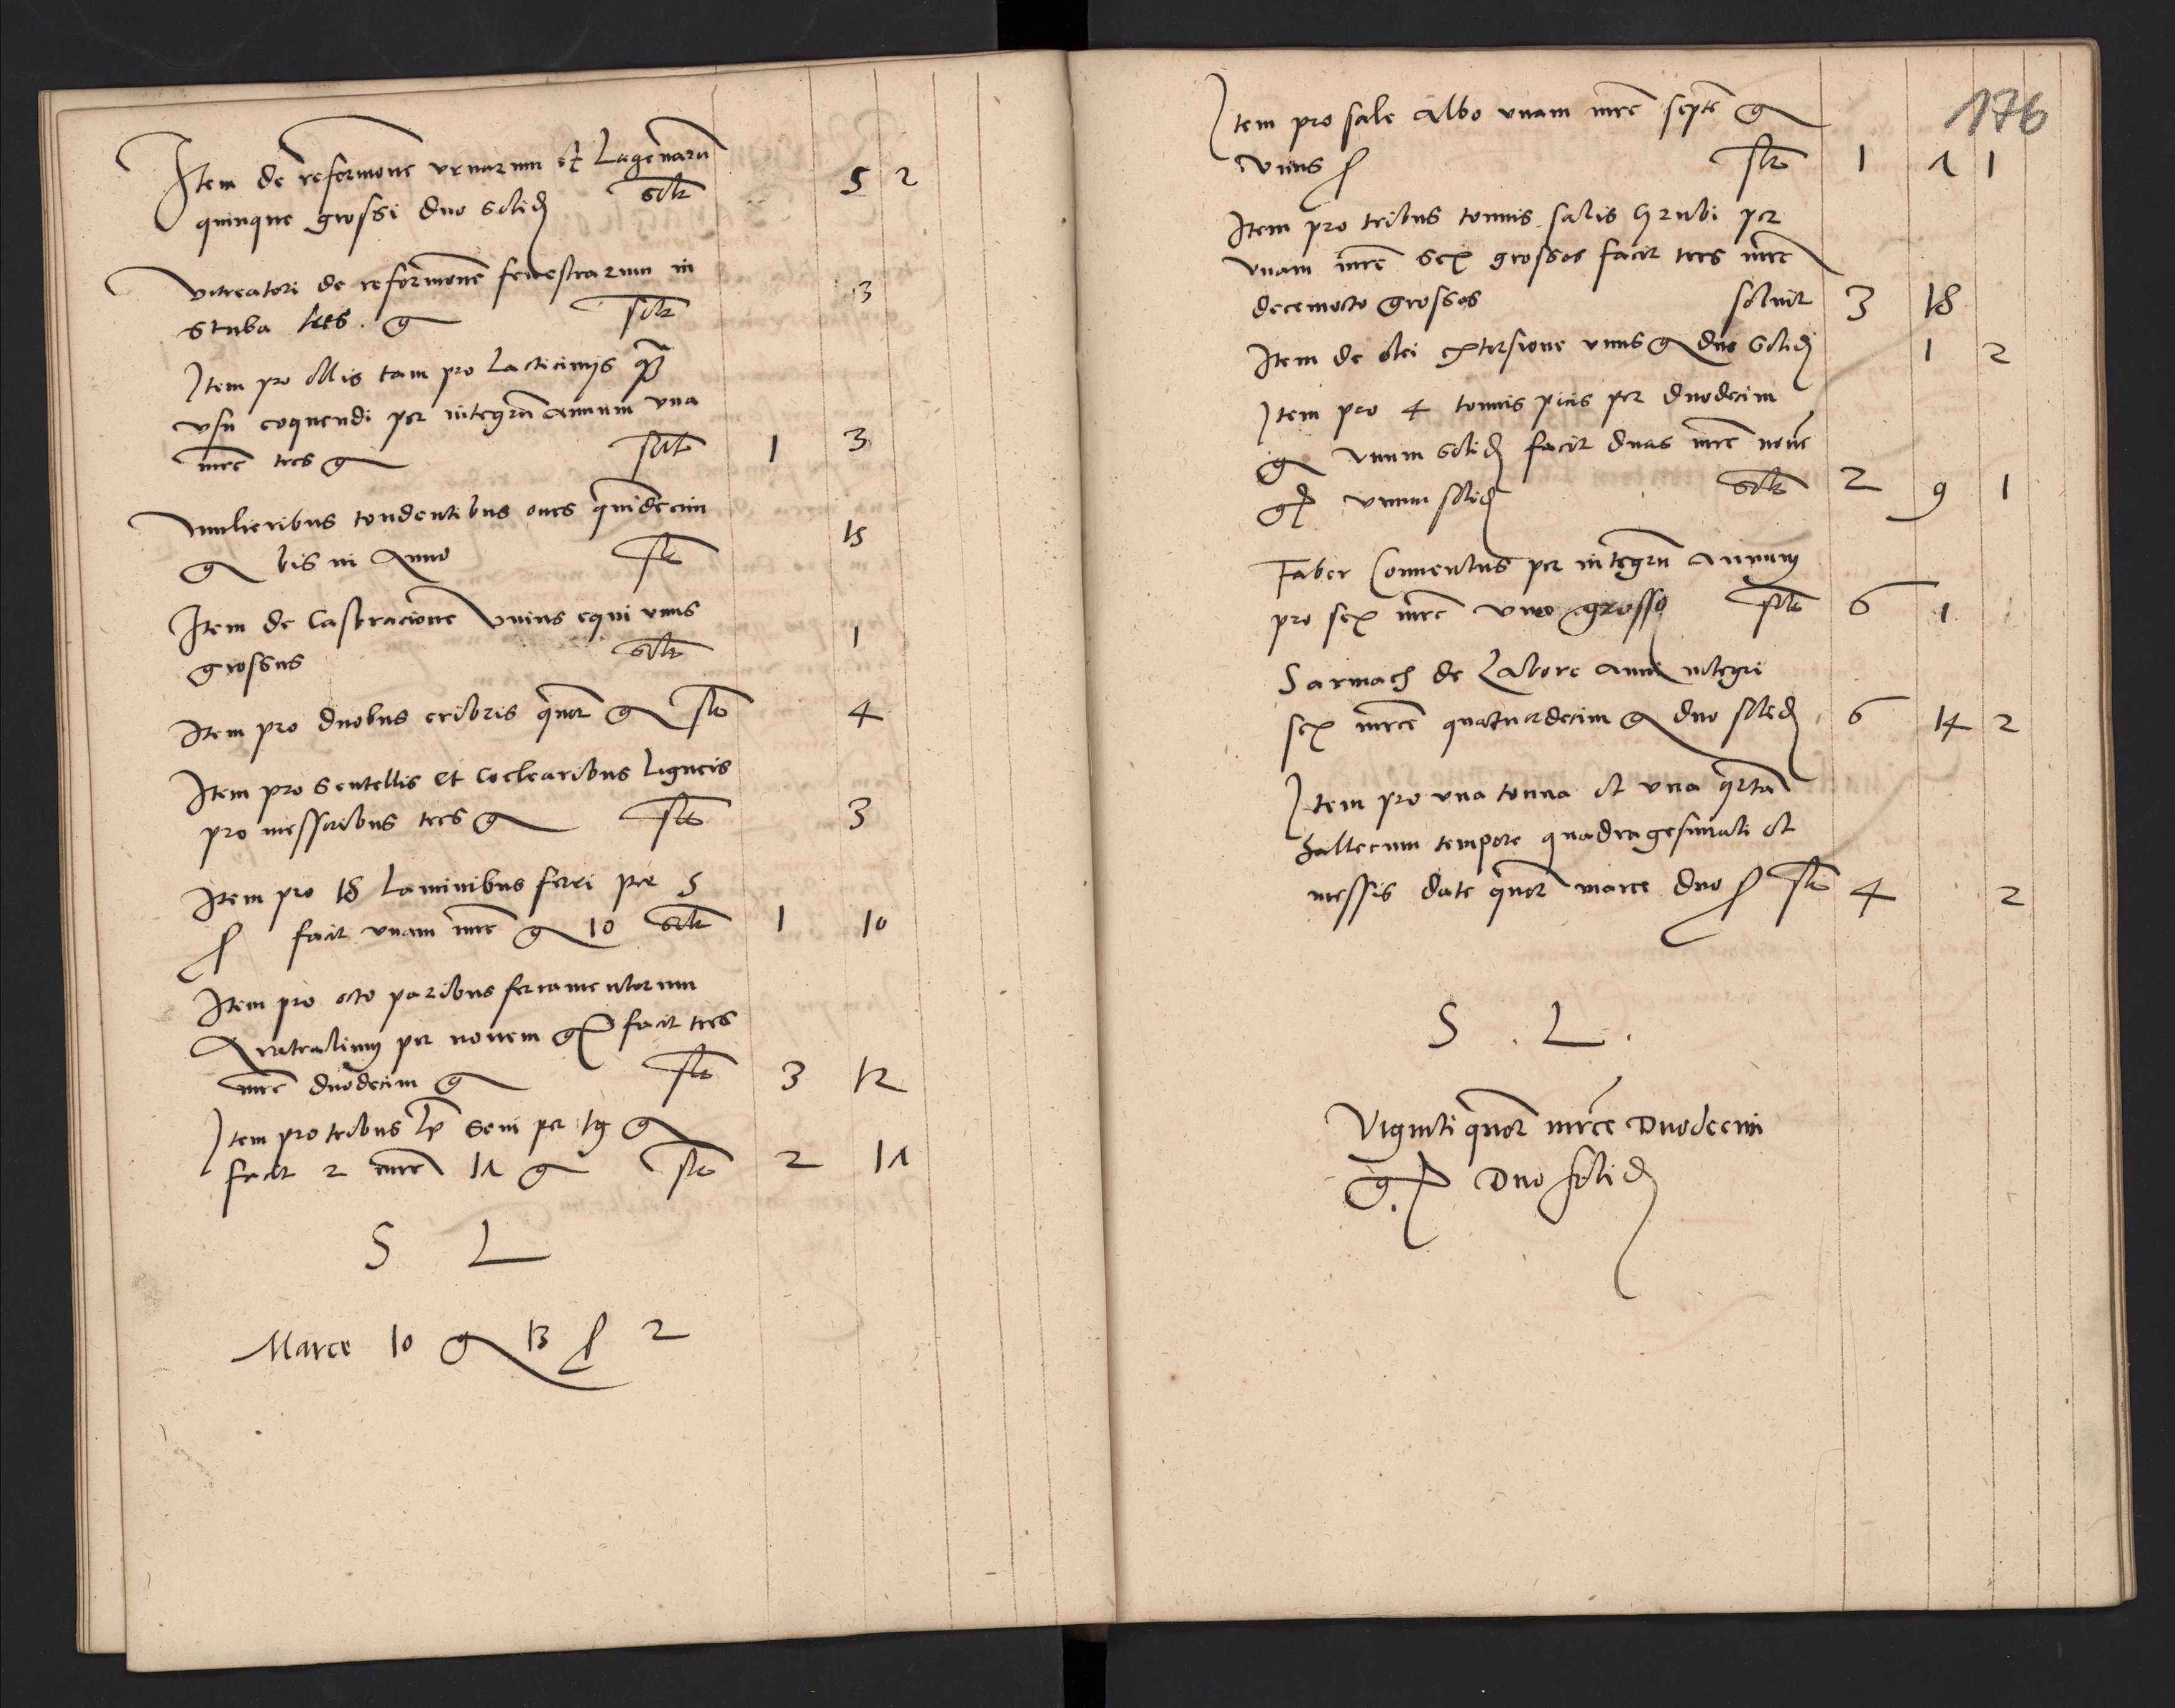 Item de reformone vrnarum et Lagenaru
quinque grossi duo solid solt 5 2
vitreatori de reformone fenestrarum in
stuba tres g solt 3
Item pro ollis tam pro Lacticinijs
vsu coquendi per integru annum vna
mrc tres g solt 1 3
Mulieribus tondentibus oues quindecim
g bis in Anno solt 15
Item de Castracione vnius equi vnus
grossus solt 1
Item pro duobus cribris quuor g solt 4
Item pro Scutellis et Coclearibus Ligneis
pro messoribus tres g solt 3
Item pro 18 Laminibus ferri per 5
ß facit vnam mrc g 10 solt 1 10
Item pro octo paribus ferramentorum
Aratralium per nouem g facit tres
mrc duodecim g solt 3 12
Item pro tribus Lp Sevi per 19 g
facit 2 mrc 17 g solt 2 17
S L
Marce 10 g 13 ß 2
176
Item pro sale Albo vnam mrc septe g
vnus ß solt 1 7 1
Item pro tribus tonnis salis Grubi per
vnam mrc sex grossos facit tres mrc
decemocto grossos soluit 3 18
Item de olei extorsione vnus g duo solid 1 2
Item pro 4 tonnis picis per duodecim
g vnum solid facit duas mrc noue
g vnum solid solt 2 9 1
Faber Conuentus per integru Annum
pro sex mrc vno grosso solt 6 1
Sarmach de Labore anni integri
sex mrce quatuordecim g duo solid 6 14 2
Item pro vna tonna et vna qrta
hallecum tempore quadragesimali et
messis date quuor marce duo ß solt 4 2
S . L .
Viginti quuor mrce Duodecim
g Duo solid